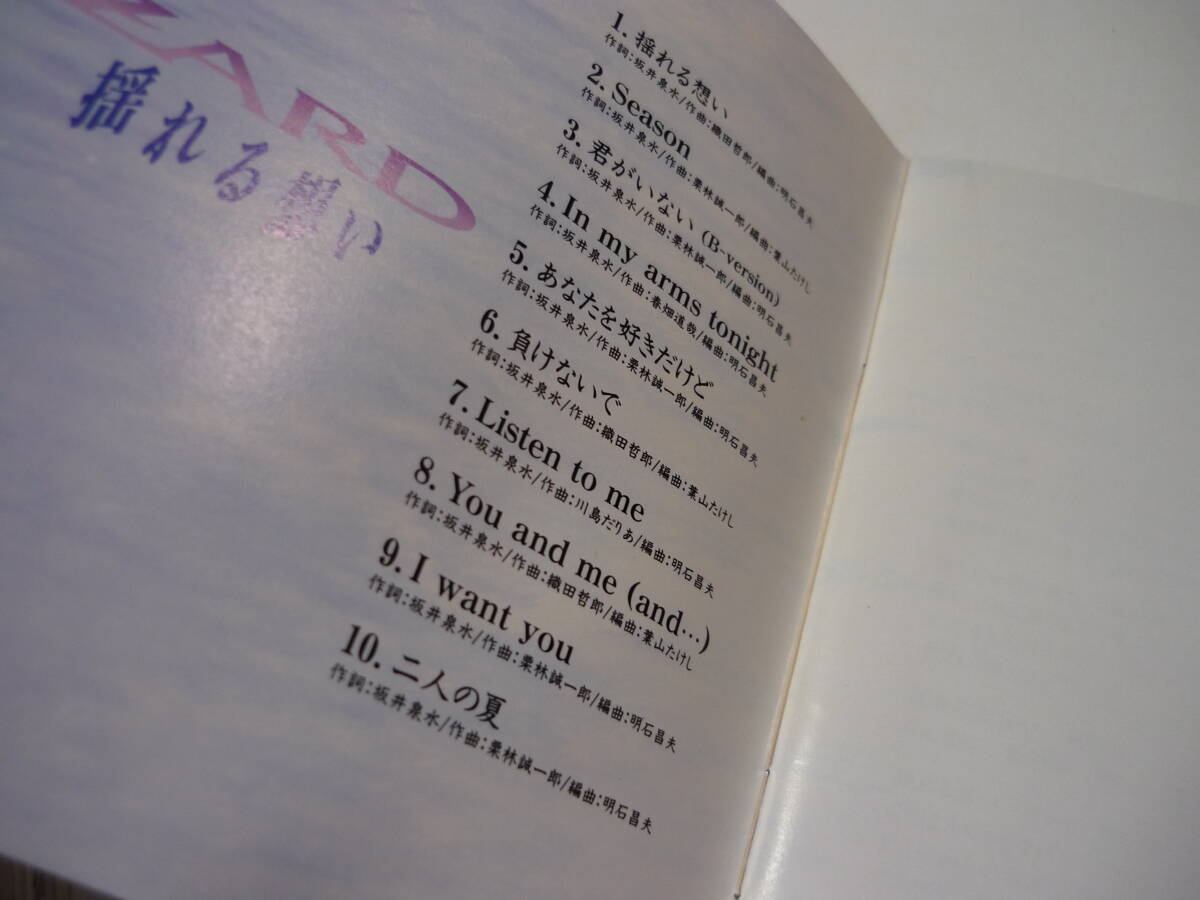 ZARD
揺れる想い
1. 揺れる想い
作詞:坂井泉水/作曲:織田哲郎/編曲:明石昌夫
2. Season
作詞:坂井泉水/作曲:栗林誠一郎/編曲:葉山たけし
3. 君がいない (B-version)
作詞:坂井泉水/作曲:栗林誠一郎/編曲:明石昌夫
4. In my arms tonight
作詞:坂井泉水/作曲:春畑道哉/編曲:明石昌夫
5. あなたを好きだけど
作詞:坂井泉水/作曲:栗林誠一郎/編曲:明石昌夫
6. 負けないで
作詞:坂井泉水/作曲:織田哲郎/編曲:葉山たけし
7. Listen to me
作詞:坂井泉水/作曲:川島だりあ/編曲:明石昌夫
8. You and me (and…)
作詞:坂井泉水/作曲:織田哲郎/編曲:葉山たけし
9. I want you
作詞:坂井泉水/作曲:栗林誠一郎/編曲:明石昌夫
10. 二人の夏
作詞:坂井泉水/作曲:栗林誠一郎/編曲:明石昌夫